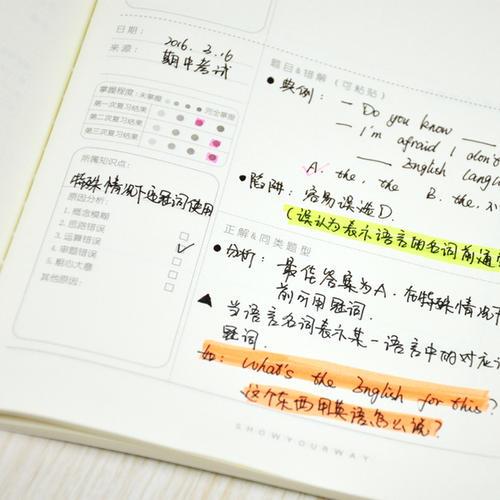 日期:
2016. 2.16
来源:
期中考试
掌握程度: 未掌握 完全掌握
第一次复习结果
第二次复习结果
第三次复习结果
所属知识点:
特殊情况下冠词使用
原因分析:
1. 概念模糊
2. 思路错误
3. 运算错误
4. 审题错误
5. 粗心大意
其他原因:
题目&错解 (可粘贴)
典例: — Do you know
— I'm afraid I don't
English langu
A. the, the B. the, 不
陷阱: 容易误选D.
(误认为表示语言的名词前通
正解&同类题型
分析: 最佳答案为A. 在特殊情况下
前可用冠词.
当语言名词表示某一语言中的对应
冠词.
如: What's the English for this?
这个东西用英语怎么说?
SHOWYOURWAY